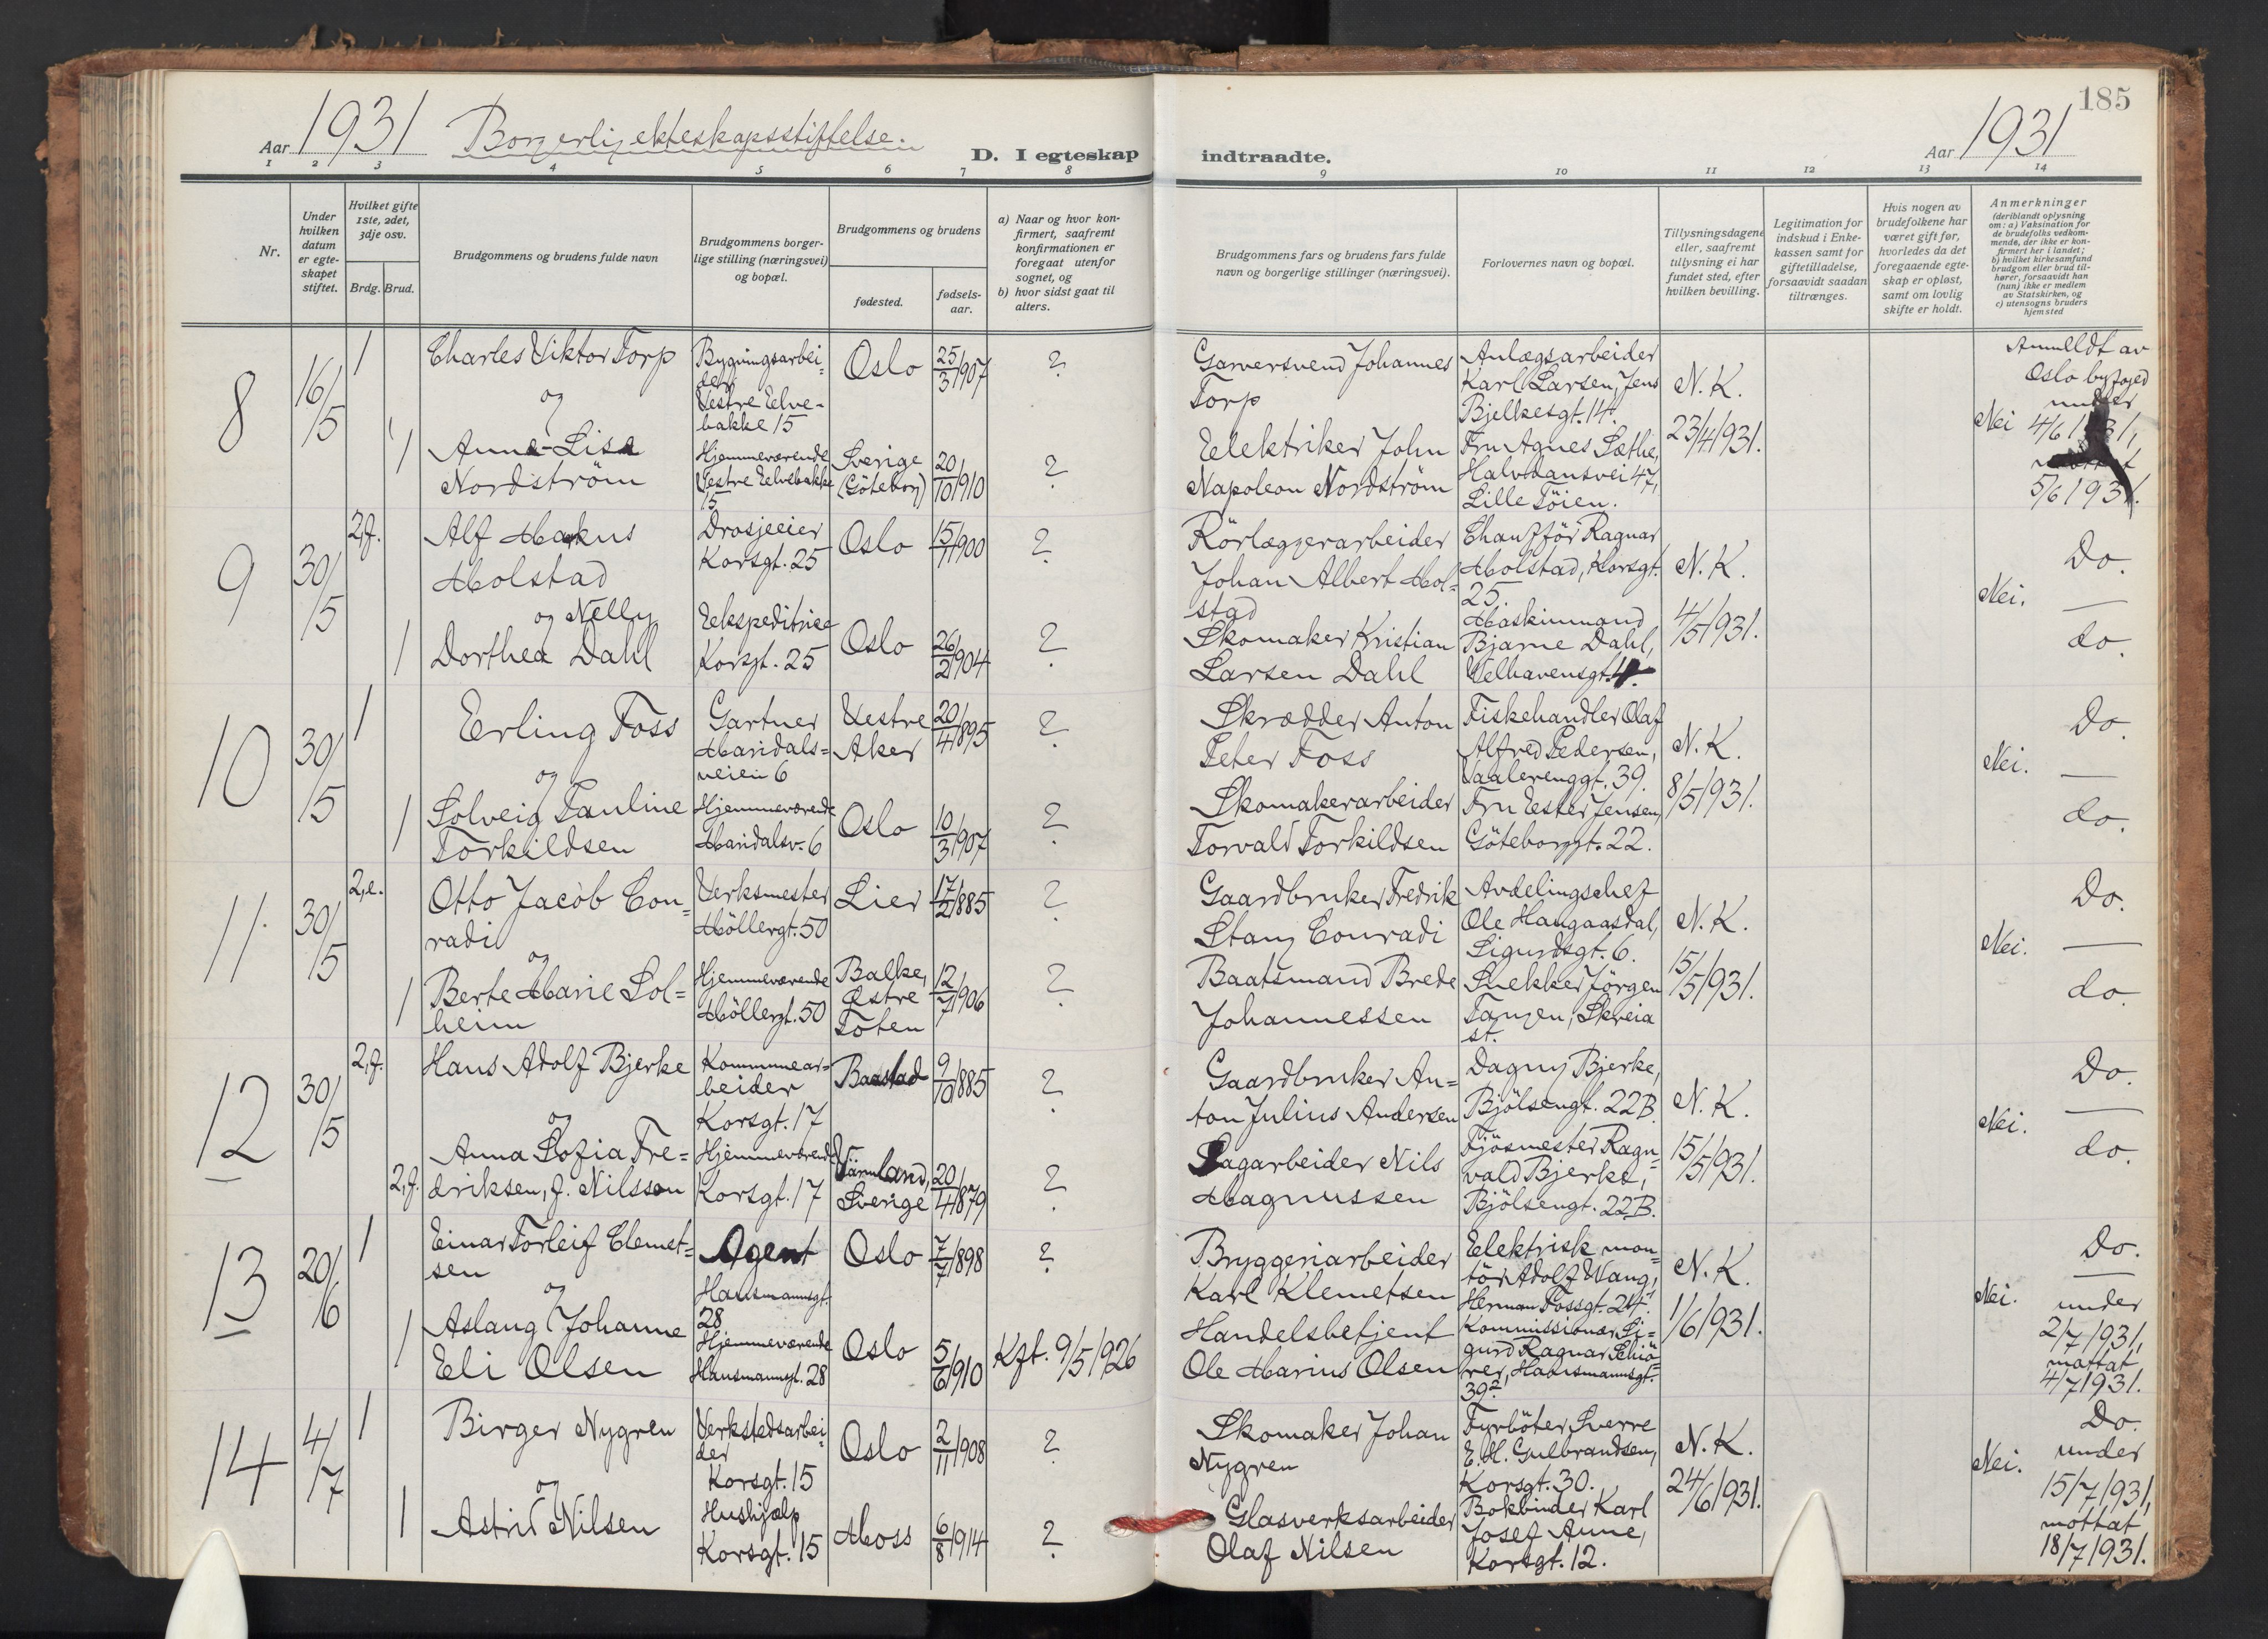 185
Aar 1931 Borgerlig ekteskapsstiftelse. D. I egteskap indtraadte. Aar 1931
1 2 3 4 5 6 7 8 9 10 11 12 13 14
Nr.
Under
hvilken
datum
er egte-
skapet
stiftet.
Hvilket gifte
1ste, 2det,
3dje osv.
Brdg. Brud.
Brudgommens og brudens fulde navn
Brudgommens borger-
lige stilling (næringsvei)
og bopæl.
Brudgommens og brudens
fødested.
fødsels-
aar.
a) Naar og hvor kon-
firmert, saafremt
konfirmationen er
foregaat utenfor
sognet, og
b) hvor sidst gaat til
alters.
Brudgommens fars og brudens fars fulde
navn og borgerlige stillinger (næringsvei).
Forlovernes navn og bopæl.
Tillysningsdagene
eller, saafremt
tillysning ei har
fundet sted, efter
hvilken bevilling.
Legitimation for
indskud i Enke-
kassen samt for
giftetilladelse,
forsaavidt saadan
tiltrænges.
Hvis nogen av
brudefolkene har
været gift før,
hvorledes da det
foregaaende egte-
skap er opløst,
samt om lovlig
skifte er holdt.
Anmerkninger
(deriblandt oplysning
om: a) Vaksination for
de brudefolks vedkom-
mende, der ikke er kon-
firmert her i landet;
b) hvilket kirkesamfund
brudgom eller brud til-
hører, forsaavidt han
(hun) ikke er medlem
av Statskirken, og
c) utensogns bruders
hjemsted
8
16/5
1
Charles Viktor Torp
og
Bygningsarbei-
der
Vestre Elve-
bakke 15
Oslo
25/3 1907
?
Garversvend Johannes
Torp
Anlægsarbeider
Karl Larsen, Jens
Bjelkesgt. 14.
N. K.
23/4 1931.
Nei
Anmeldt av
Oslo byfoged
under
4/6 1931,
mottat
5/6 1931.
1
Anna-Lisa
Nordström
Hjemmeværende
Vestre Elvebakke
15
Sverige
(Göteborg)
20/10 1910
?
Elektriker John
Napoleon Nordström
Fru Agnes Sæthe,
Halvdansvei 47,
Lille Töien.
9
30/5
2, f.
Alf Markus
Molstad
Drosjeeier
Korsgt. 25
Oslo
15/11 1900
?
Rörlæggerarbeider
Johan Albert Mol-
stad
Chaufför Ragnar
Molstad, Korsgt.
25.
N. K.
4/5 1931.
Nei.
Do.
—
do.
1
og Nelly
Dorthea Dahl
Ekspeditrice
Korsgt. 25
Oslo
26/2 1904
?
Skomaker Kristian
Larsen Dahl
Maskinmand
Bjarne Dahl,
Welhavensgt. 4.
10
30/5
1
Erling Foss
og
Gartner
Maridals-
veien 6
Vestre
Aker
20/4 1895
?
Skrædder Anton
Peter Foss
Fiskehandler Olaf
Alfred Pedersen,
Vaalerenggt. 39.
N. K.
8/5 1931.
Nei.
Do.
—
do.
1
Solveig Pauline
Torkildsen
Hjemmeværende
Maridalsv. 6
Oslo
10/3 1907
?
Skomakerarbeider
Torvald Torkildsen
Fru Ester Jensen,
Göteborggt. 22.
11.
30/5
2, e.
Otto Jacob Con-
radi
og
Verksmester
Möllergt. 50
Lier
17/2 1885
?
Gaardbruker Fredrik
Stang Conradi
Avdelingschef
Ole Haugaasdal,
Sigurdsgt. 6.
N. K.
15/5 1931.
Nei.
Do.
—
do.
1
Berte Marie Sol-
heim
Hjemmeværende
Möllergt. 50
Balke,
Østre
Toten
12/7 1906
?
Baatsmand Brede
Johannessen
Snekker Jörgen
Tangen, Skreia
st.
12
30/5
2, f.
Hans Adolf Bjerke
og
Kommunear-
beider
Korsgt. 17
Baastad
9/10 1885
?
Gaardbruker An-
ton Julius Andersen
Dagny Bjerke,
Bjölsengt. 22B.
N. K.
15/5 1931.
Nei.
Do.
—
do.
2, f.
Anna Sofia Fre-
driksen, f. Nilsson
Hjemmeværende
Korsgt. 17
Värmland,
Sverige
20/4 1879
?
Sagarbeider Nils
Magnussen
Fjösmester Ragn-
vald Bjerke,
Bjölsengt. 22B.
13
20/6
1
Einar Torleif Clemet-
sen
og
Agent
Hausmannsgt.
28
Oslo
7/7 1898
?
Bryggeriarbeider
Karl Klemetsen
Elektrisk mon-
tör Adolf Wang,
Herman Fossgt. 24.
N. K.
1/6 1931.
Nei.
Do.
—
under
2/7 1931,
mottat
4/7 1931.
1
Aslaug Johanne
Eli Olsen
Hjemmeværende
Hausmannsgt. 28
Oslo
5/6 1910
Kft. 9/5 1926
Handelsbetjent
Ole Marius Olsen
Kommissionær Si-
gurd Ragnar Schiö-
rer, Hausmannsgt.
39²
14
4/7
1
Birger Nygren
og
Verkstedsarbei-
der
Korsgt. 15
Oslo
2/11 1908
?
Skomaker Johan
Nygren
Fyrböter Sverre
E. H. Gulbrandsen,
Korsgt. 30.
N. K.
24/6 1931.
Nei.
Do.
under
15/7 1931,
mottat
18/7 1931.
1
Astrid Nilsen
Hushjælp
Korsgt. 15
Moss
6/8 1914
?
Glasverksarbeider
Olaf Nilsen
Bokbinder Karl
Josef Anne,
Korsgt. 12.